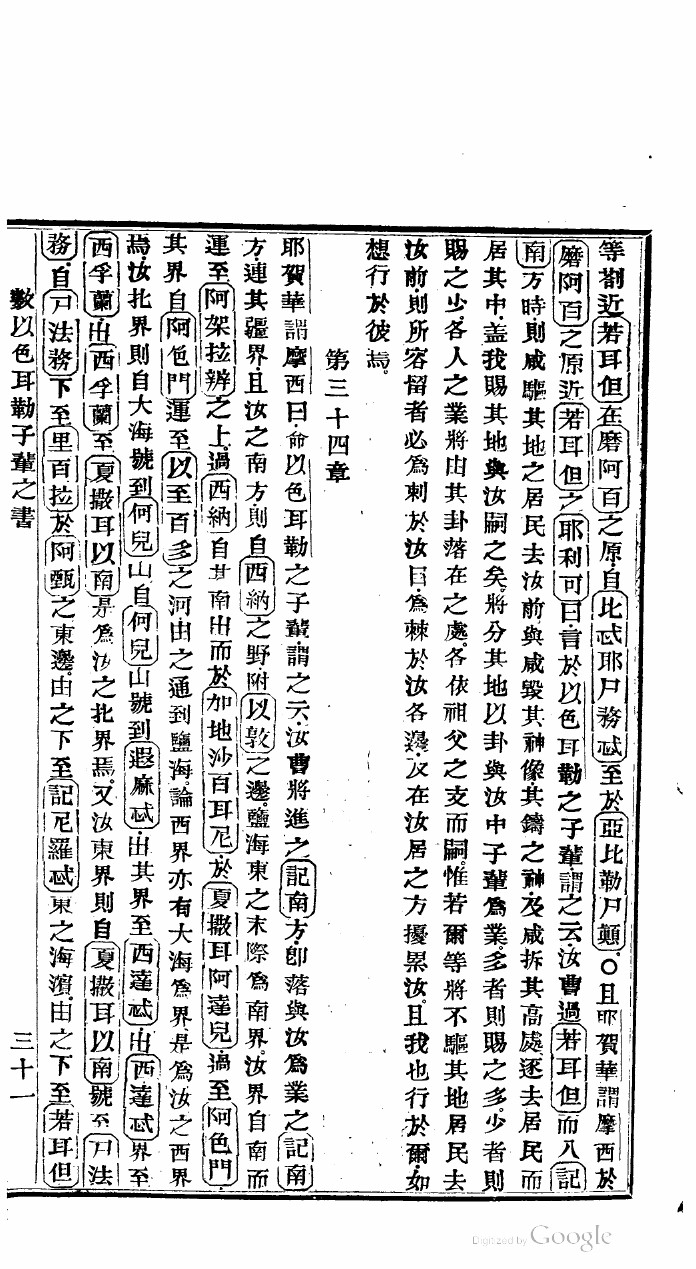 等劄近若耳但在磨阿百之原自比忒耶尸務忒至於亞比勒尸顛○且耶賀華謂摩西於
磨阿百之原近若耳但之耶利可曰言於以色耳勒之子輩謂之云汝曹過若耳但而入記
南方時則咸驅其地之居民去汝前與咸毀其神像其鑄之神及咸拆其高處逐去居民而
居其中盖我賜其地與汝嗣之矣將分其地以卦與汝中子輩為業多者則賜之多少者則
賜之少各人之業將由其卦落在之處各依祖父之支而嗣惟若爾等將不驅其地居民去
汝前則所容留者必為刺於汝目為棘於汝各邊及在汝居之方擾累汝且我也行於爾如
想行於彼焉。
第三十四章
耶賀華謂摩西曰命以色耳勒之子輩謂之云汝曹將進之記南方即落與汝為業之記南
方連其疆界且汝之南方則自西納之野附以敦之邊鹽海東之末際為南界汝界自南而
運至阿架拉辨之上過西納自其南出而於加地沙百耳尼於夏撒耳阿達兒過至阿色門
其界自阿色門運至以至百多之河由之通到鹽海論西界亦有大海為界是為汝之西界
焉汝北界則自大海號到何兒山自何兒山號到遐麻忒出其界至西達忒出西達忒界至
西孚蘭出西孚蘭至夏撒耳以南是為汝之北界焉又汝東界則自夏撒耳以南號至尸法
務自尸法務下至里百拉於阿甄之東邊由之下至記尼羅忒東之海濱由之下至若耳但
數以色耳勒子輩之書 三十一
Digitized by Google